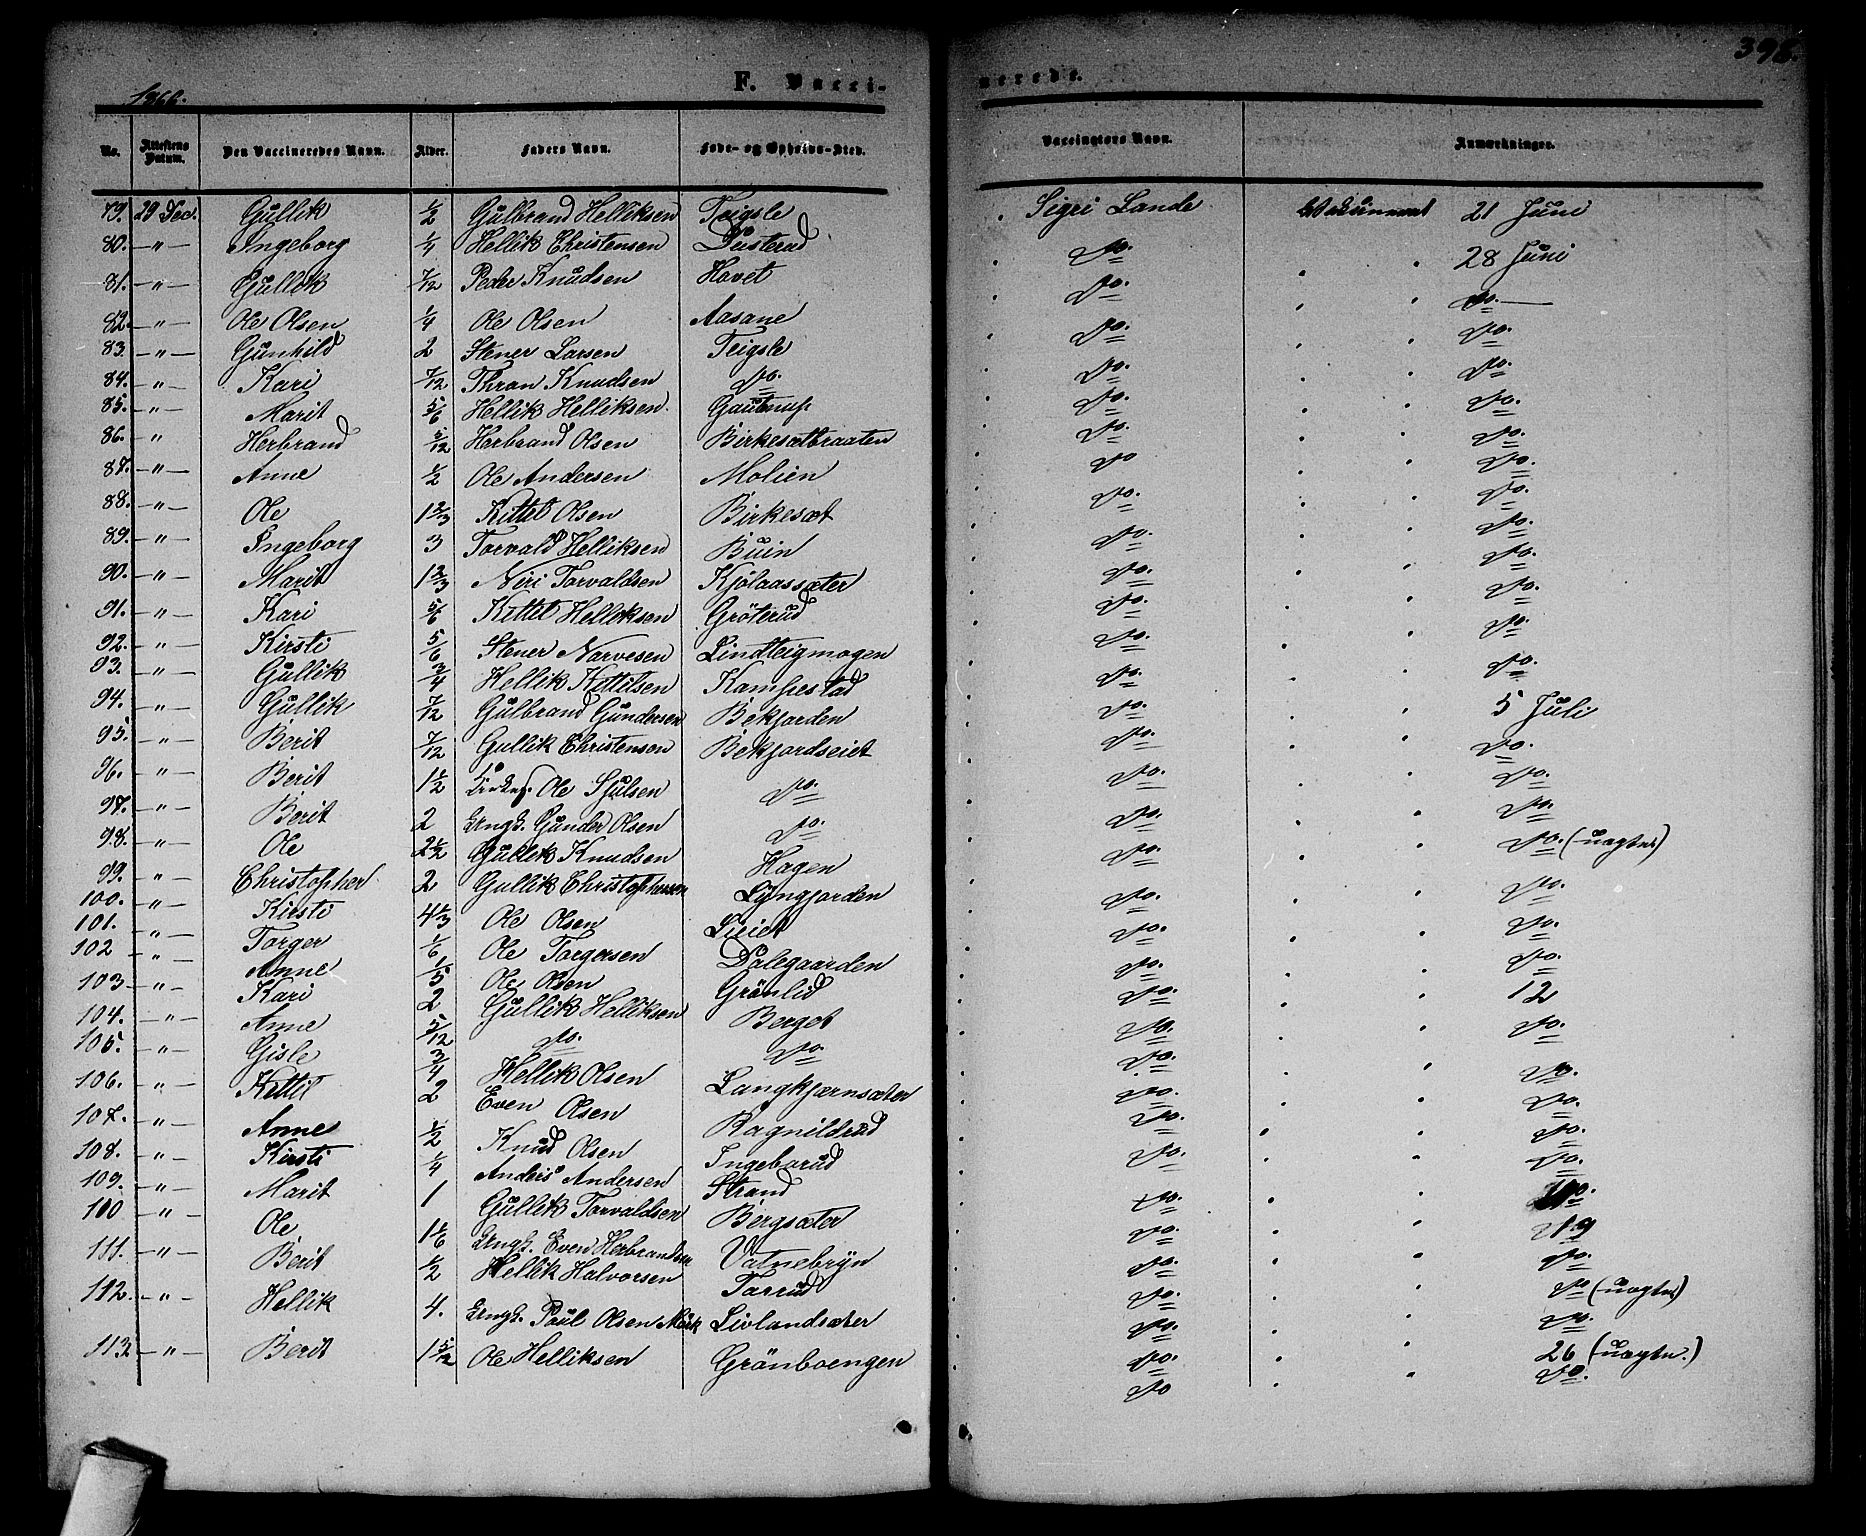 398.
1866.
F. Vacci-
nerede.
No. Attestens Datum. Den Vaccineredes Navn. Alder. Faders Navn. Føde- og Opholds-Sted. Vaccinators Navn. Anmærkninger.
79. 29 Dec. Gullik 1/2 Gulbrand Helliksen Teigsle Sigri Lande 21 Juni
80. —"— Ingeborg 1/4 Hellik Christensen do. 28 Juni
81. —"— Gullik 7/12 Peder Knudsen Havet do. do.
82. —"— Ole Olsen 1/4 Ole Olsen Aasane do. do.
83. —"— Gunhild 2 Stener Larsen Teigsle do. do.
84. —"— Kari 7/12 Thran Knudsen do. do. do.
85. —"— Marit 5/6 Hellik Helliksen do. do.
86. " Herbrand 5/12 Herbrand Olsen Birkesætbraaten do. do.
87. —"— Anne 1/2 Ole Andersen Molien do do.
88. —"— Ole 1 2/3 Kittil Olsen Birkesæt do. do.
89. —"— Ingeborg 3 Torvald Helliksen Buin do. do.
90. —"— Marit 1 2/3 Niri Torvaldsen Kjölaassæter do. do.
91. —"— Kari 5/6 Kittil Helliksen Gröterud do. do.
92. —"— Kirsti 5/6 Stener Narvesen Lindteigmogen do. do.
93. —"— Gullik 3/4 Hellik Kittilsen Kampestad do. do.
94. —"— Gullik 7/12 Gulbrand Gundersen Bekjorden do. 5 Juli
95. —"— Berit 7/12 Gullik Christensen Bekjordseiet do. do.
96. —"— Berit 1 1/2 Ole Sjulsen do. do. do.
97. —"— Berit 2 Ungk. Gunder Olsen do. do. do.
98. —"— Ole 2 1/2 Gullik Knudsen Hagen do. do. (uægte)
99. —"— Christopher 2 Gullik Christophersen Lyngjorden do. do.
100. —"— Kirsti 4 1/3 Ole Olsen Lieiet do. do.
101. —"— Torger 1/6 Ole Torgersen Dalegaarden do. do.
102 —"— Anne 1/5 Ole Olsen Grönlid do. 12
103 —"— Kari 2 Gullik Helliksen Berget do. do.
104. —"— Anne 5/12 do. do. do. do.
105. —"— Gisle 3/4 Hellik Olsen Langkjærnsæter do. do.
106. —"— Kittil 2 Even Olsen Ragnildrud do. do.
107. —"— Anne 1/2 Knud Olsen Ingeborud do. do.
108. —"— Kirsti 1/4 Anders Andersen Strand do. do.
109. —"— Marit 1 Gullik Torvaldsen Bergsæter do. 19
110 —"— Ole 1 1/6 Ungk. Even Herbrandsen Vatnebryn do. do.
111. —"— Berit 1/2 Hellik Halvorsen Tarrud do. do. (uægte)
112. —"— Hellik 4. Ungk. Paul Olsen Mörk Livlandsæter do. 26 (uægte.)
113 —"— Berit 1 5/12 Ole Helliksen Grönboengen do do.